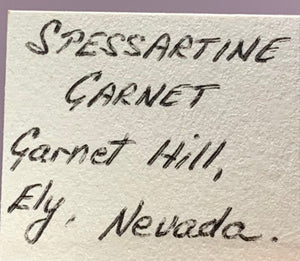 SPESSARTINE
GARNET
Garnet Hill,
Ely, Nevada.